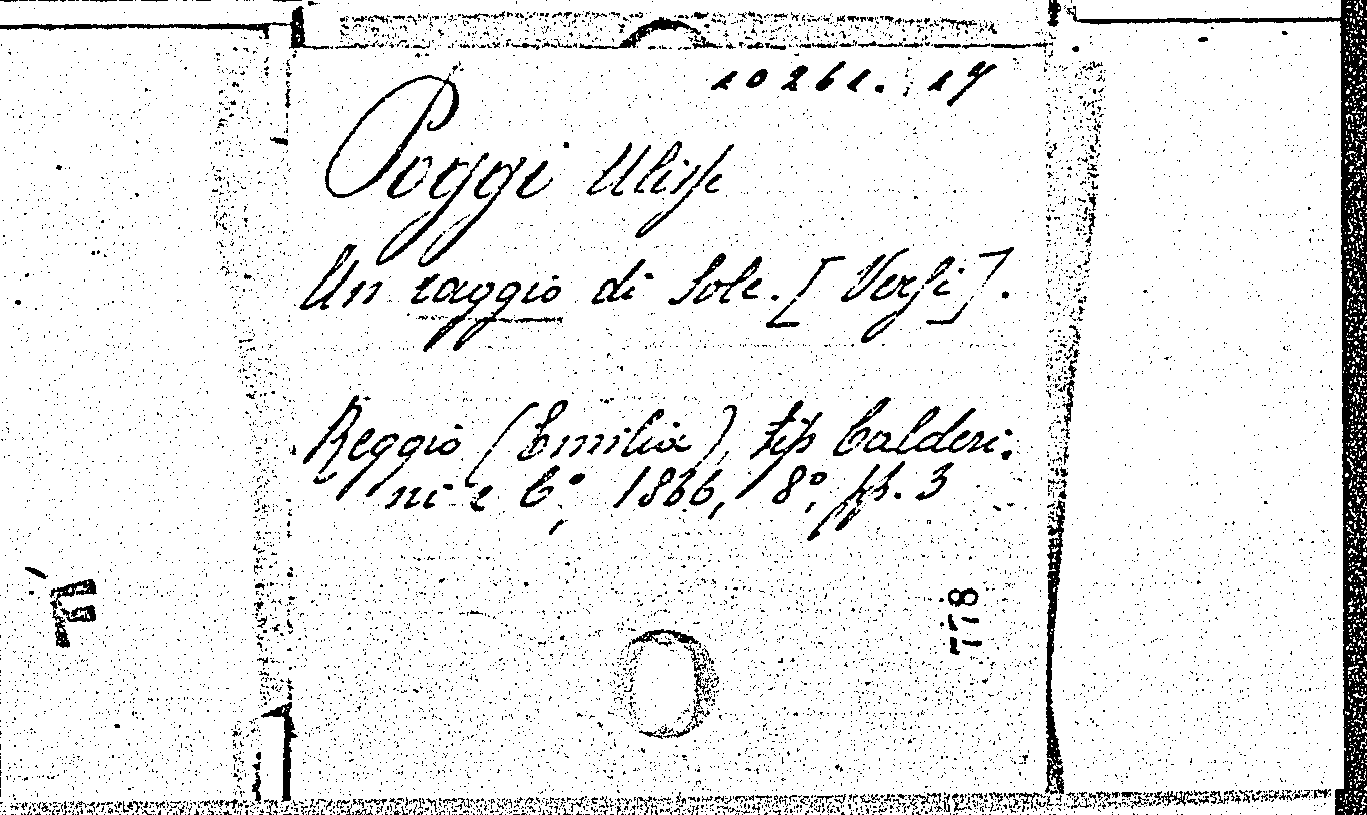 10261. 17
Poggi Ulisse
Un raggio di Sole. [Versi].
Reggio (Emilia), tip Calderi-
ni e C°, 1866, 8°, pp. 3
778